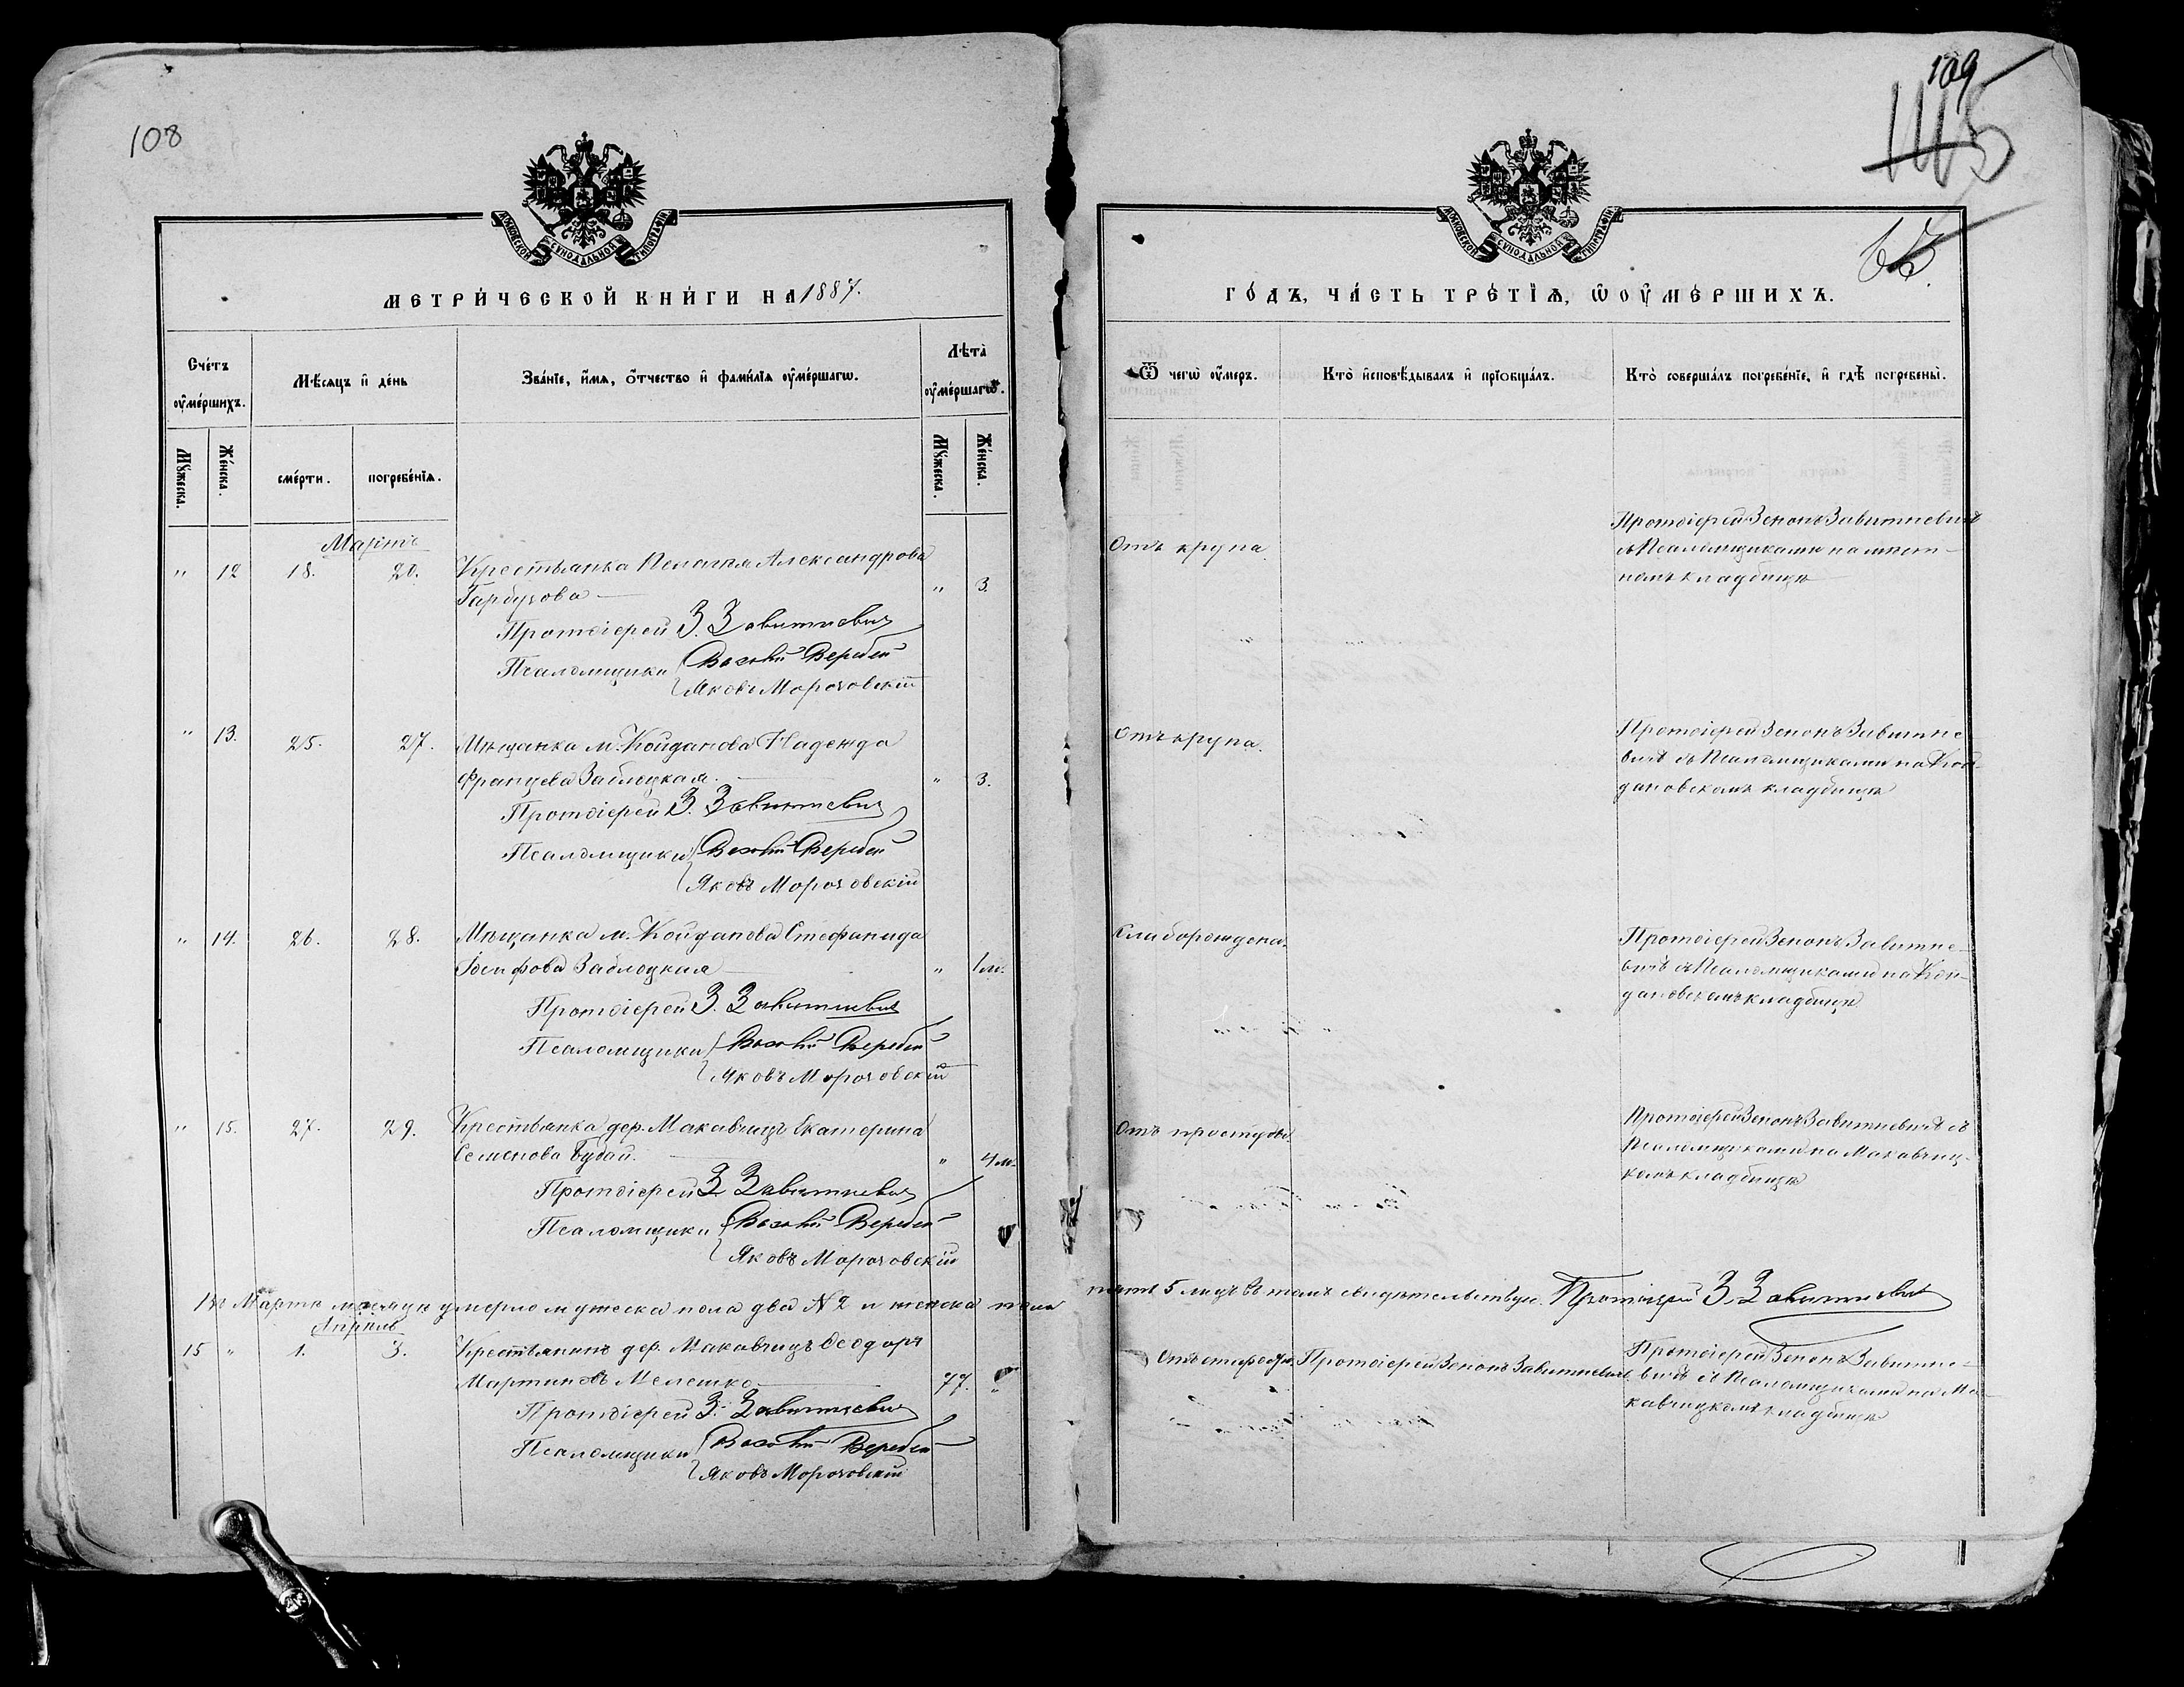 108
МОСКОВСКОЙ СУНОДАЛЬНОЙ ТИПОГРАФІИ
МЕТРИ́ЧЕСКОЙ КНИ́ГИ НА 1887.
Сче́тъ ᲂу҆ме́ршихъ.
Мѣ́сяцъ и҆ де́нь
Зва́нїе, и҆́мѧ, ѻ҆́тчество и҆ фамилїѧ ᲂу҆ме́ршагѡ.
Лѣта̀ ᲂу҆ме́ршагѡ.
Мꙋ́жеска.
Же́нска.
сме́рти.
погребе́нїѧ.
Мꙋ́жеска.
Же́нска.
Мартъ
" 12 18. 20. Крестьянка Пелагія Александрова
Гарбузова " 3.
Протоіерей З. Завитневич
Псаломщики Василій Веребей
Яковъ Морозовскій
" 13. 25. 27. Мѣщанка м. Койданова Надежда
Францева Заблоцкая. " 3.
Протоіерей З. Завитневич
Псаломщики Василій Веребей
Яковъ Морозовскій
" 14. 26. 28. Мѣщанка м. Койданова Стефанида
Іосифова Заблоцкая " 1 м.
Протоіерей З. Завитневич
Псаломщики Василій Веребей
Яковъ Морозовскій
" 15. 27. 29. Крестьянка дер. Макавчицъ Екатерина
Семенова Будай. " 4 м.
Протоіерей З. Завитневич
Псаломщики Василій Веребей
Яковъ Морозовскій
Въ Мартѣ мѣсяцѣ умерло мужеска пола два № 2 и женска пола
Апрѣль
15 " 1. 3. Крестьянинъ дер. Макавчицъ Ѳеодоръ
Мартиновъ Мелешко 77. "
Протоіерей З. Завитневич
Псаломщики Василій Веребей
Яковъ Морозовскій
109
115
МОСКОВСКОЙ СУНОДАЛЬНОЙ ТИПОГРАФІИ
ГО́ДЪ, ЧА́СТЬ ТРЕ́ТЇѦ, Ѡ ᲂУ҆МЕ́РШИХЪ.
Ѿ чегѡ̀ ᲂу҆́меръ.
Кто̀ и҆сповѣ́дывалъ и҆ прїобща́лъ.
Кто̀ соверша́лъ погребе́нїе, и҆ гдѣ̀ погребены̀.
Отъ крупа
Протоіерей Зенонъ Завитневичъ
съ Псаломщиками на мѣст-
номъ кладбищѣ
Отъ крупа.
Протоіерей Зенонъ Завитне-
вичъ съ Псаломщиками на Кой-
дановскомъ кладбищѣ
Слаборожденная.
Протоіерей Зенонъ Завитне-
вичъ съ Псаломщиками на Кой-
дановскомъ кладбищѣ
Отъ простуды.
Протоіерей Зенонъ Завитневичъ съ
Псаломщиками на Макавчиц-
комъ кладбищѣ
пять 5 лицъ въ томъ свидѣтельствую. Протоіерей З. Завитневич
Отъ старости. Протоіерей Зенонъ Завитневичъ
Протоіерей Зенонъ Завитне-
вичъ съ Псаломщиками на Ма-
кавчицкомъ кладбищѣ